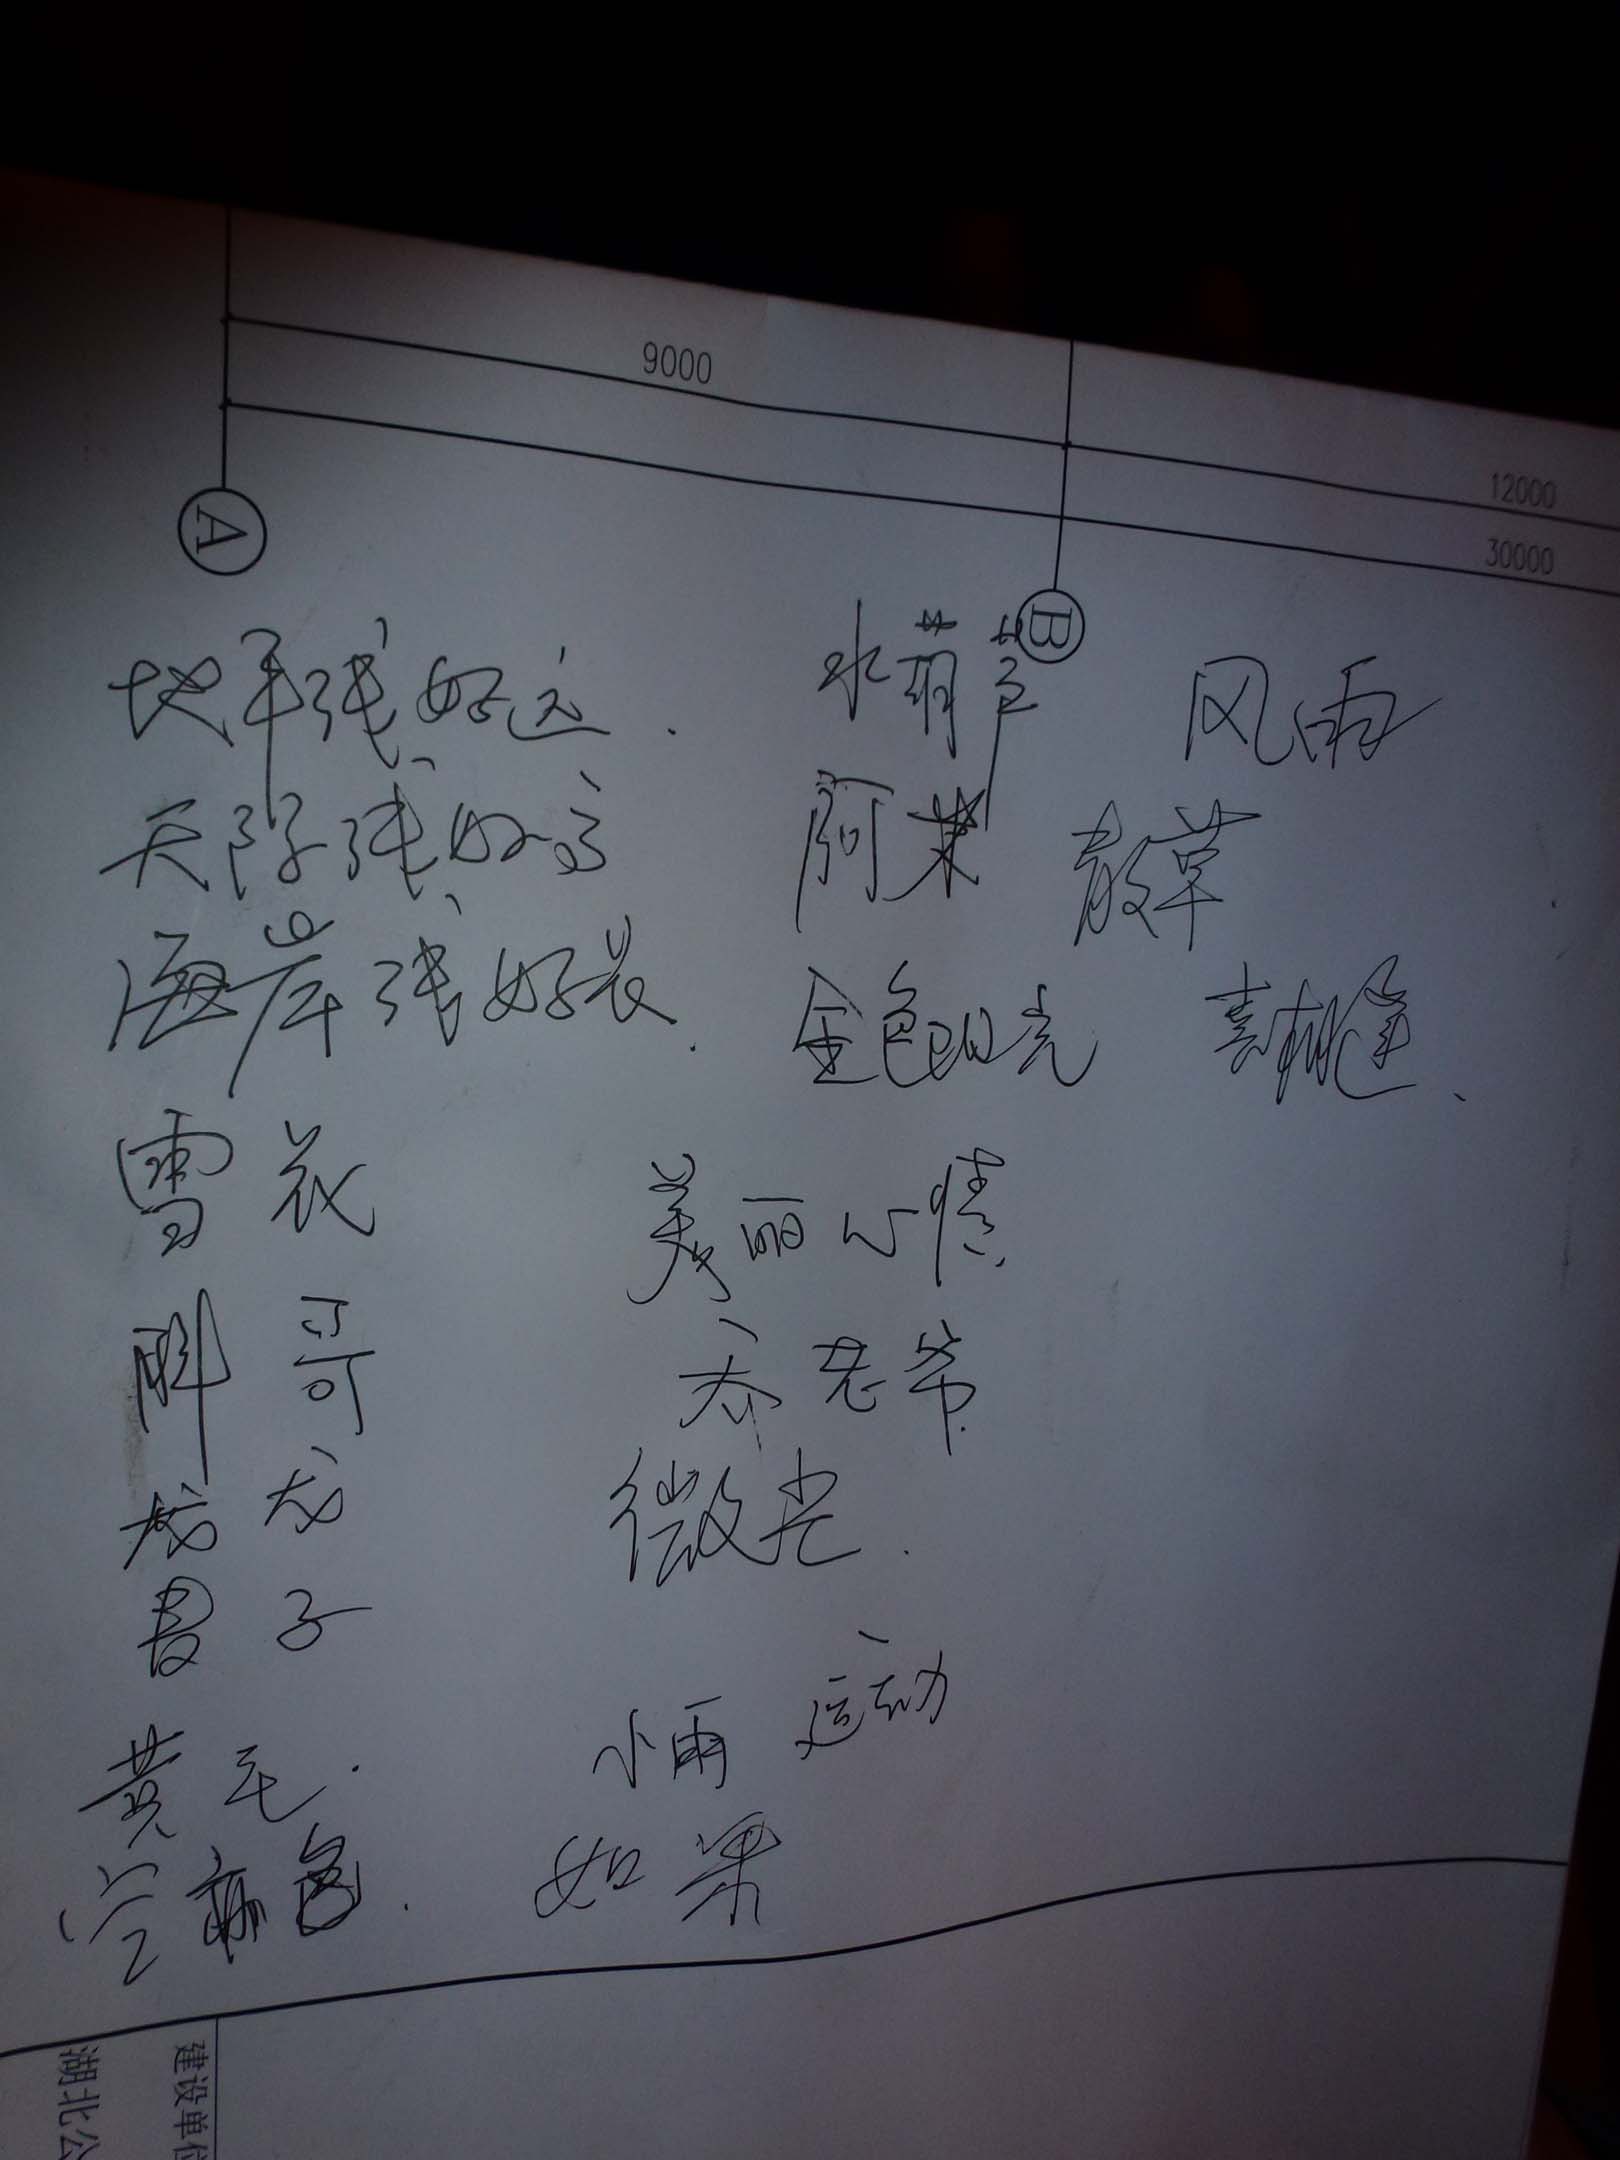 9000
12000
30000
A
B
地平线,好远.
天际线,好高
海岸线,好长.
雪花
哥
龙
君子
黄毛.
水葫芦
阿
金色阳光
美丽心情
乔老爷
微光.
小雨 运动
如果
风雨
草
喜相逢、
建设单位
湖北公